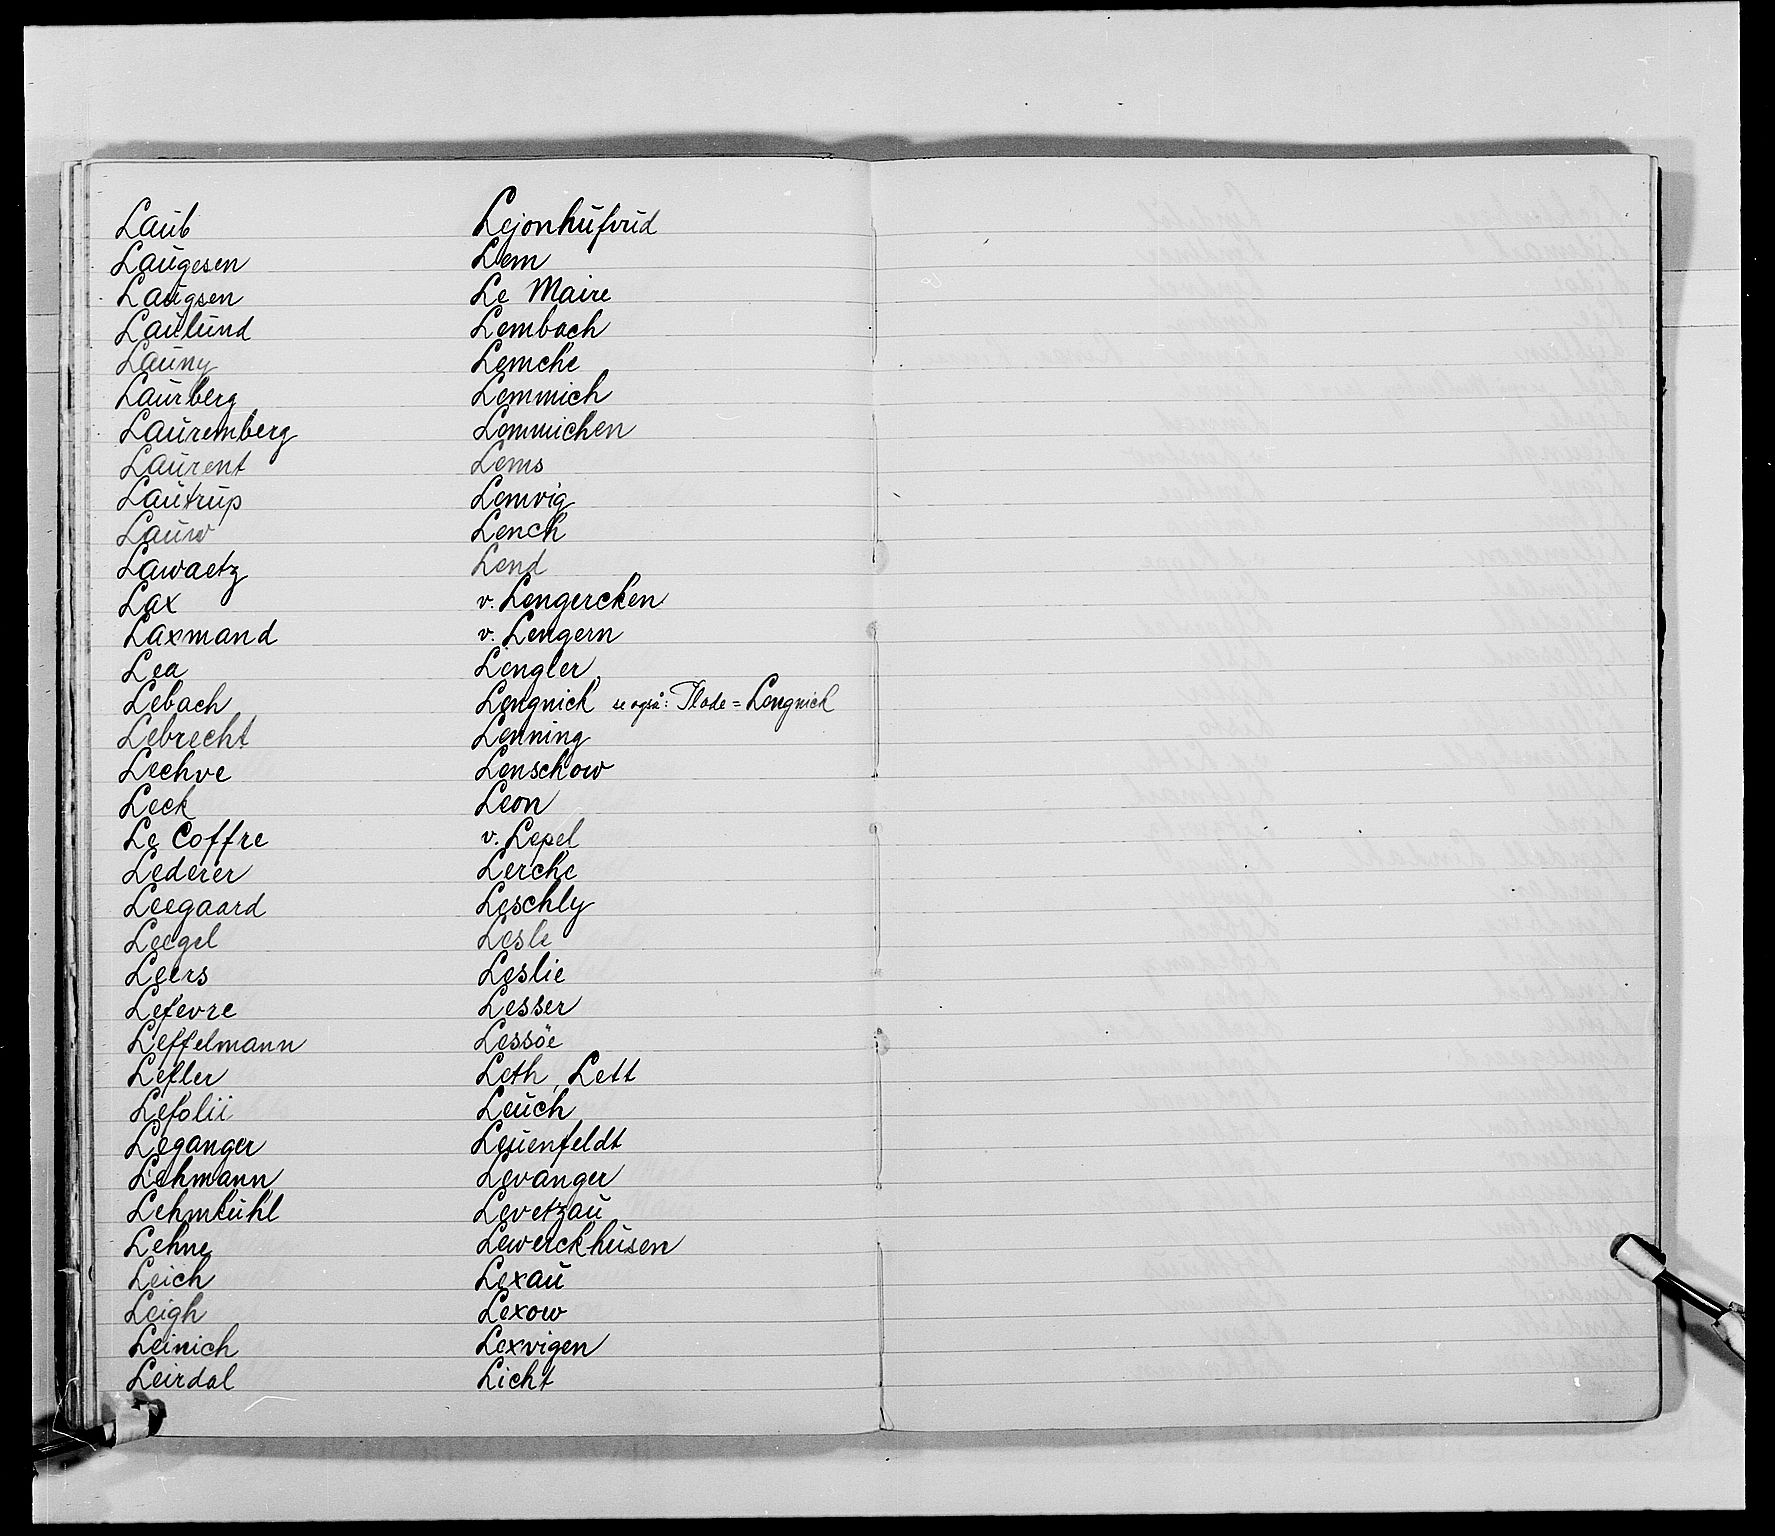 Laub
Laugesen
Laugsen
Laulund
Launy
Laurberg
Lauremberg
Laurent
Lautrup
Lauw
Lawaetz
Lax
Laxmand
Lea
Lebach
Lebrecht
Lechve
Leck
Le Coffre
Lederer
Leegaard
Leegel
Leers
Lefevre
Leffelmann
Lefler
Lefolii
Leganger
Lehmann
Lehmkuhl
Lehne
Leich
Leigh
Leinich
Leirdal
Lejonhufvud
Lem
Le Maire
Lembach
Lemche
Lemmich
Lemmichen
Lems
Lemvig
Lench
Lend
v. Lengercken
v. Lengern
Lengler
Lengnick se også: Plade = Lengnick
Lenning
Lenschow
Leon
v. Lepel
Lerche
Leschly
Lesle
Leslie
Lesser
Lessöe
Leth, Lett
Leuch
Leuenfeldt
Levanger
Levetzau
Lewerckhusen
Lexau
Lexow
Lexvigen
Licht